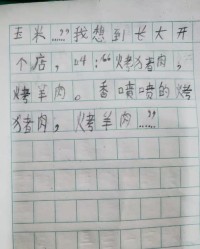 玉米……”我想到长大开
个店，叫：“烤猪肉，
烤羊肉。香喷喷的烤
猪肉，烤羊肉……”